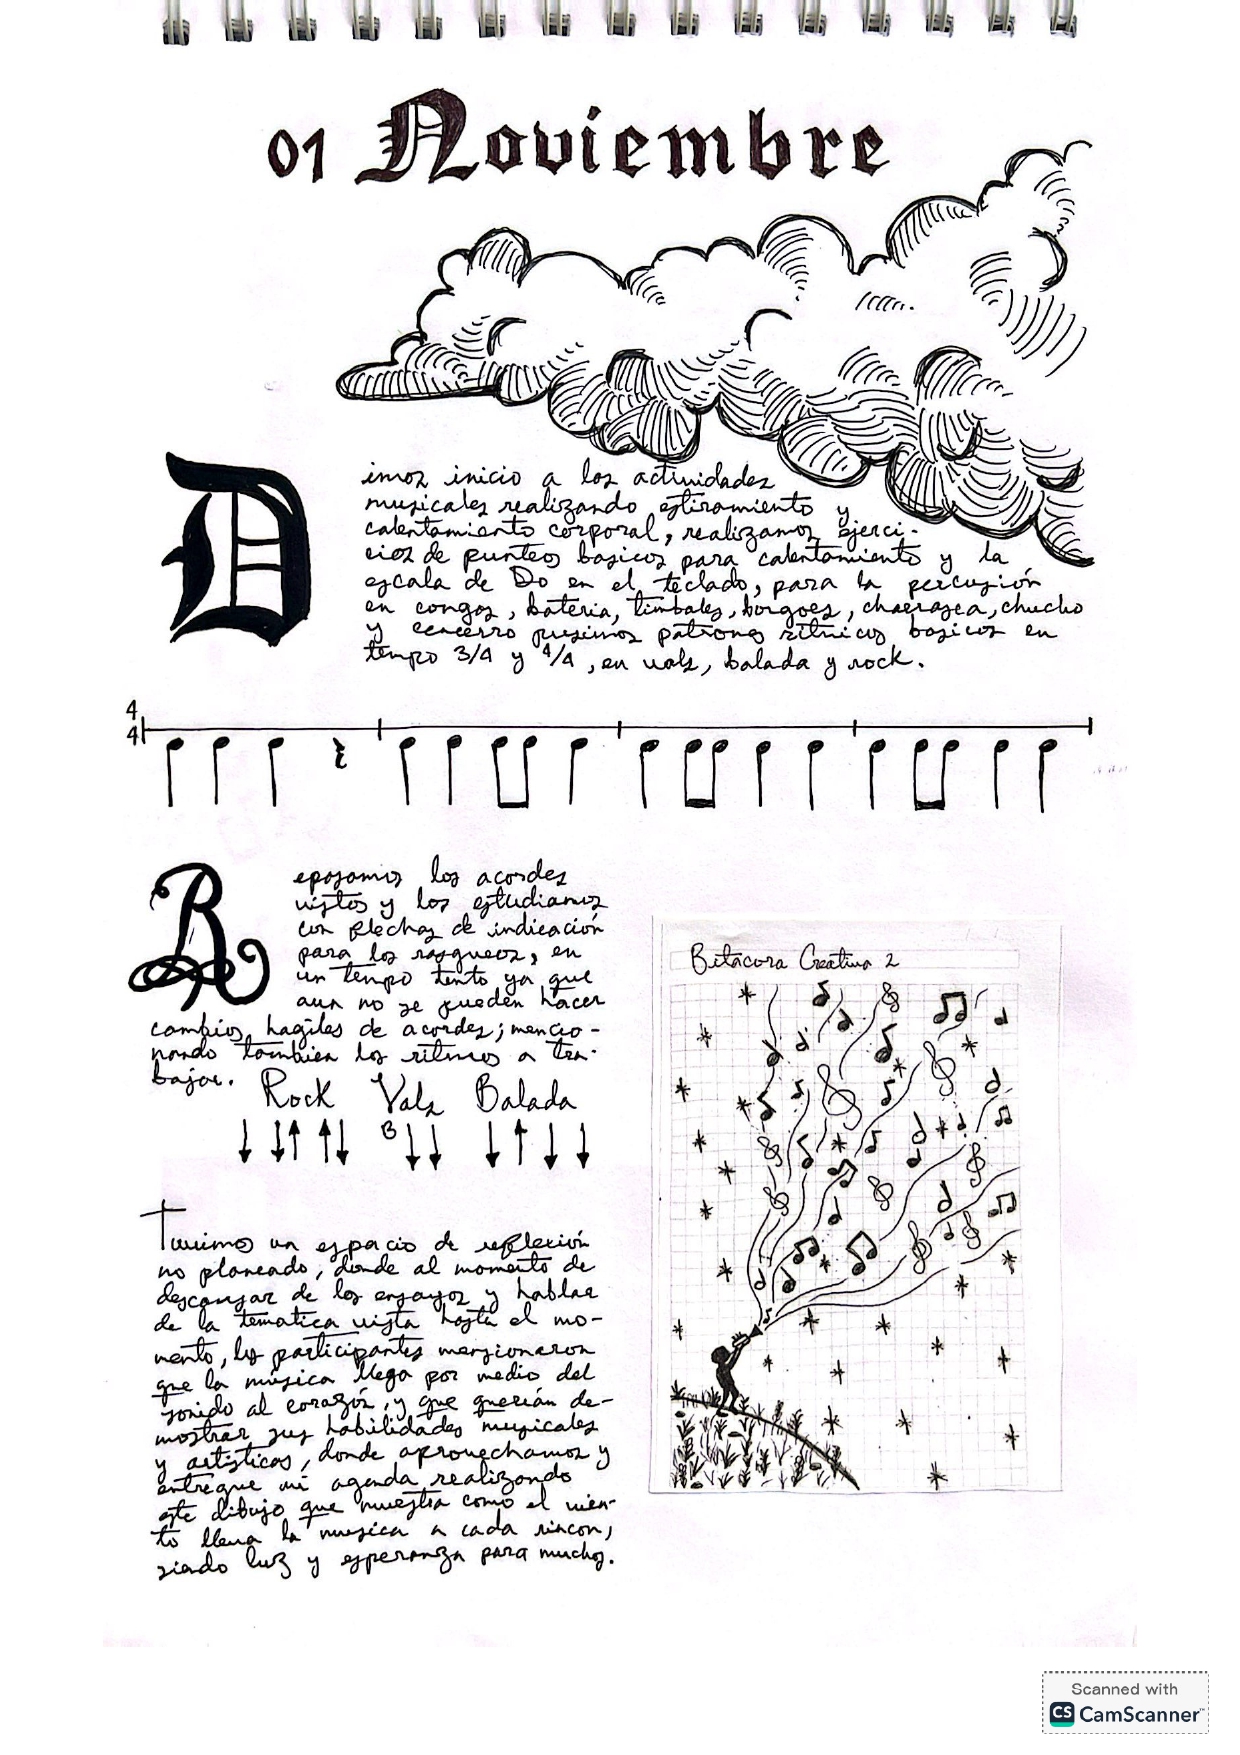 01 Noviembre
Dimos inicio a las actividades
musicales realizando estiramiento y
calentamiento corporal, realizamos ejerci-
cios de punteos basicos para calentamiento y la
escala de Do en el teclado, para la percusión
en congas, bateria, timbales, borgoes, charrasca, chucho
y cencerro pusimos patrones ritmicos basicos en
tempo 3/4 y 4/4, en vals, balada y rock.
4
4
Repasamos los acordes
vistos y los estudiamos
con flechas de indicación
para los rasgueos, en
un tempo lento ya que
aun no se pueden hacer
cambios hagiles de acordes; mencio-
nando tambien los ritmos a tra-
bajar.
Rock Vals Balada
B
Tuvimos un espacio de reflexión
no planeado, donde al momento de
descansar de los ensayos y hablar
de la tematica vista hasta el mo-
mento, los participantes mensionaron
que la música llega por medio del
sonido al corazón, y que querian de-
mostrar sus habilidades musicales
y artisticas, donde aprovechamos y
entregue mi agenda realizando
este dibujo que muestra como el vien-
to lleva la musica a cada rincon,
siendo luz y esperanza para muchos.
Bitacora Creativa 2
Scanned with
CS CamScanner